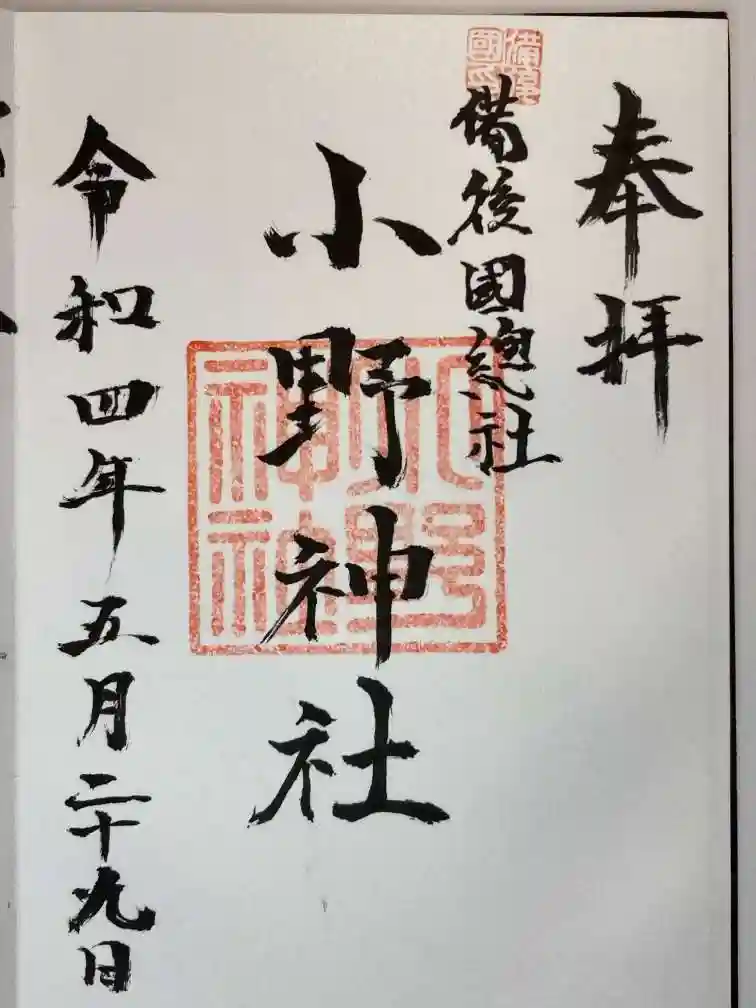 奉拝
備後國總社
小野神社
令和四年五月二十九日
小野神社